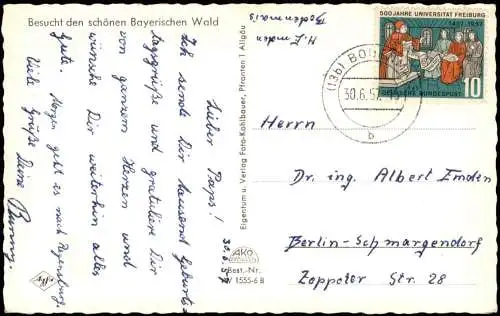 Besucht den schönen Bayerischen Wald
30.6.57
Lieber Paps!
Ich sende Dir tausend Geburts-
tagsgrüße und gratuliere Dir
von ganzem Herzen und
wünsche Dir weiterhin alles
Gute. Morgen geht es nach Regensburg.
Viele Grüße Deine
Bunny.
Eigentum u. Verlag Foto-Kohlbauer, Pfronten 1 Allgäu
AKO
Best.-Nr.
W 1555-6 B
H. Emden
Bodenmais
(13b) BOD
30.6.57
b
500 JAHRE UNIVERSITÄT FREIBURG
1457-1957
DEUTSCHE BUNDESPOST
10
Herrn
Dr. ing. Albert Emden
Berlin-Schmargendorf
Zoppoter Str. 28